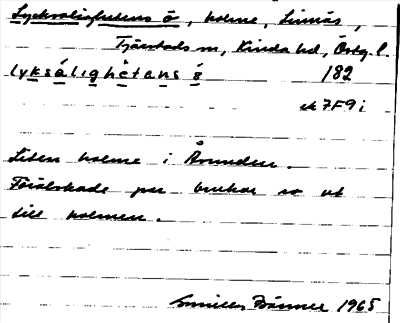 Lycksalighetens ö, holme, Linnäs,
Tjärstads sn, Kinda hd, Östg. l.
lyksálighètans ö 182
ek 7F9i
Liten holme i Åsunden.
Förälskade par brukar ro ut
till holmen.
Bänner 1965